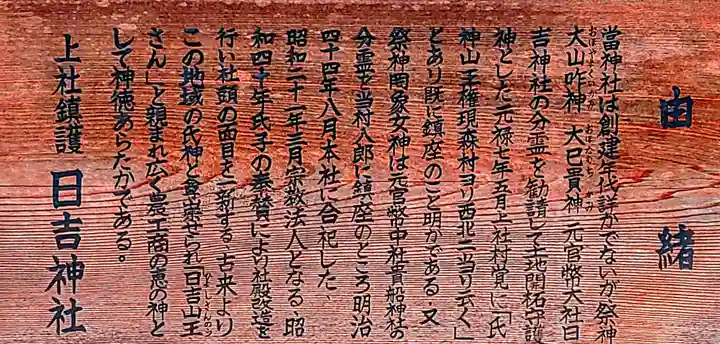 由緒
當神社は創建年代詳かでないが、祭神
大山咋神 大已貴神 元官幣大社日
おほやまくいのかみ おほなむちのかみ
吉神社の分霊を勧請して土地開拓守護
神とした元禄七年五月上社村覚に「氏
神山王権現森村ヨリ西北ニ当り云く」
とあり既に鎮座のこと明かである、又
祭神岡象女神は元官幣中社貴船神社の
分霊を当村八郎に鎮座のところ明治
四十四年八月本社に合祀した、
昭和二十一年三月宗教法人となる、昭
和四十年氏子の奉賛により社殿改造を
行い社頭の面目を一新する、古来より
この地域の氏神と尊崇せられ「日吉山王
さん」と親まれ広く農工商の恵の神と
して神徳あらたかである。
上社鎮護 日吉神社